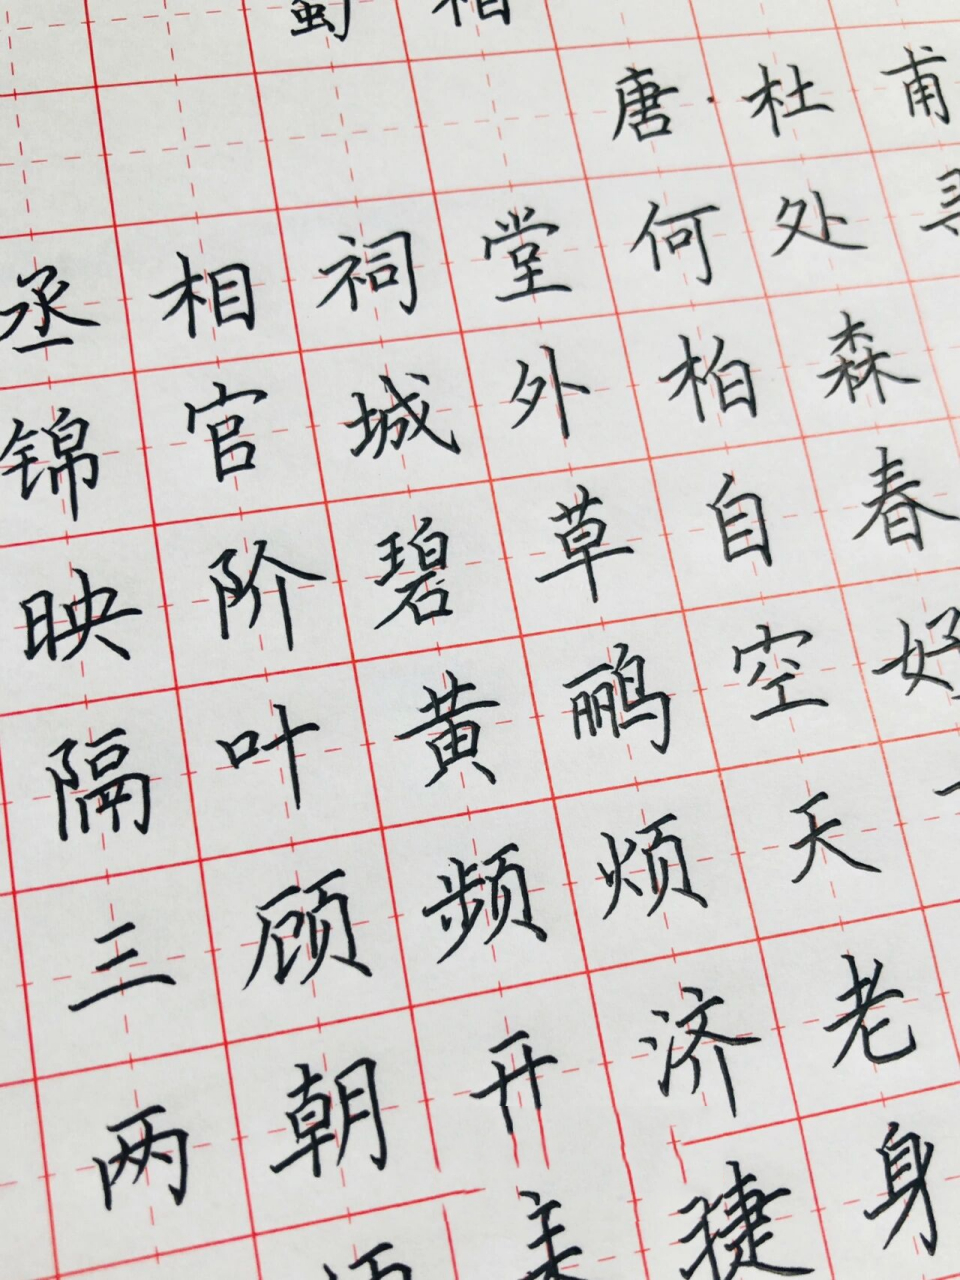 蜀相
唐·杜甫
丞相祠堂何处寻
锦官城外柏森
映阶碧草自春
隔叶黄鹂空好
三顾频烦天下
两朝开济老
捷身